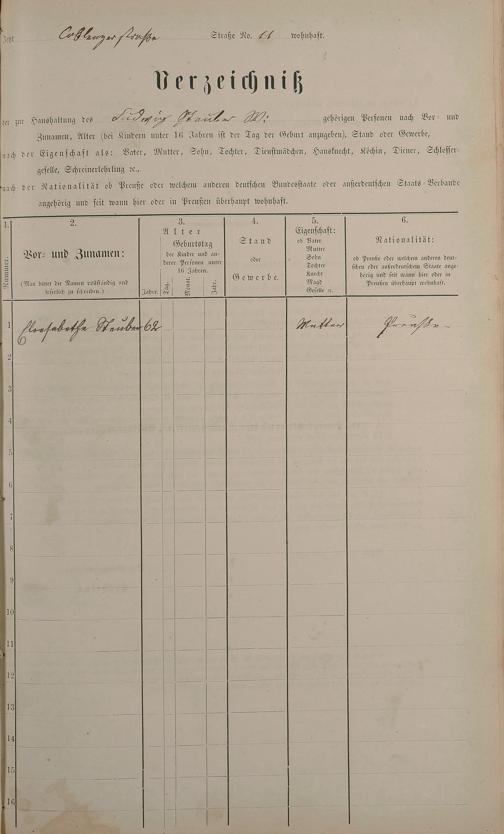 Jetzt Coblenzerstraße Straße No. 11 wohnhaft.
Verzeichniß
der zur Haushaltung des Ludwig Stauber Wi: gehörigen Personen nach Vor- und
Zunamen, Alter (bei Kindern unter 16 Jahren ist der Tag der Geburt anzugeben), Stand oder Gewerbe,
nach der Eigenschaft als: Vater, Mutter, Sohn, Tochter, Dienstmädchen, Hausknecht, Köchin, Diener, Schlosser-
geselle, Schreinerlehrling ꝛc.,
nach der Nationalität ob Preuße oder welchem anderen deutschen Bundesstaate oder außerdeutschen Staats-Verbande
angehörig und seit wann hier oder in Preußen überhaupt wohnhaft.
1.
Nummer.
2.
Vor- und Zunamen:
(Man bittet die Namen vollständig und
leserlich zu schreiben.)
3.
Alter
Geburtstag
der Kinder und an-
derer Personen unter
16 Jahren.
Jahre. Tag. Monat. Jahr.
4.
Stand
oder
Gewerbe.
5.
Eigenschaft:
ob Vater
Mutter
Sohn
Tochter
Knecht
Magd
Geselle ꝛc.
6.
Nationalität:
ob Preuße oder welchem anderen deut-
schen oder außerdeutschem Staate ange-
hörig und seit wann hier oder in
Preußen überhaupt wohnhaft.
1 Elisabetha Stauber 62 Mutter Preuße
2
3
4
5
6
7
8
9
10
11
12
13
14
15
16